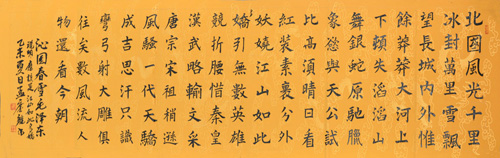 北國風光千里
冰封萬里雪飄
望長城內外惟
餘莽莽大河上
下頓失滔滔山
舞銀蛇原馳臘
象欲與天公試
比高須晴日看
紅裝素裹分外
妖嬈江山如此
嬌引無數英雄
競折腰惜秦皇
漢武略輸文采
唐宗宋祖稍遜
風騷一代天驕
成吉思汗只識
彎弓射大雕俱
往矣數風流人
物還看今朝
沁園春雪毛澤東
乙未夏日孟